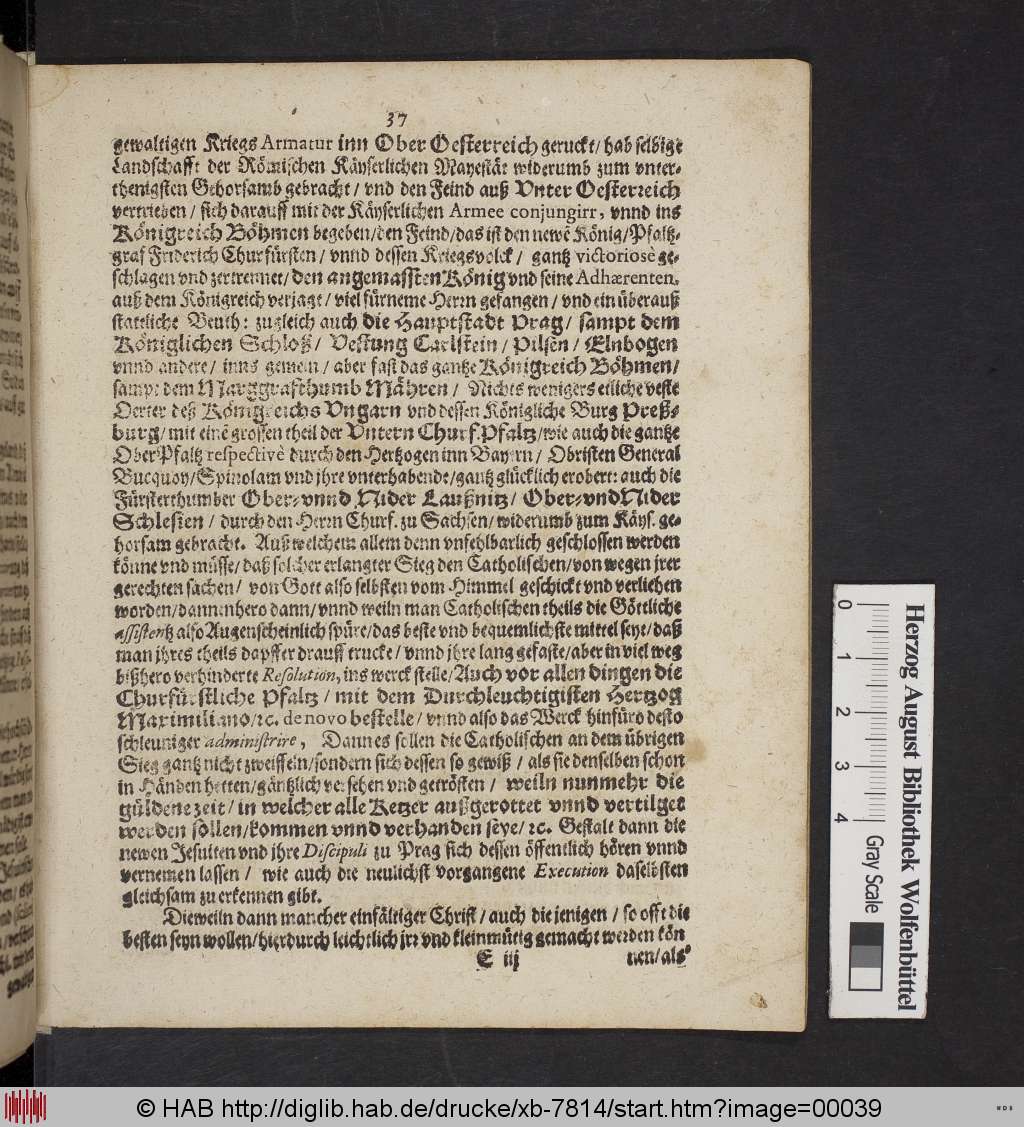 37
gewaltigen Kriegs Armatur inn Ober Oesterreich geruckt/ hab selbige
Landschafft der Römischen Käyserlichen Mayestät widerumb zum vnter-
thenigsten Gehorsamb gebracht / vnd den Feind auß Vnter Oesterreich
vertrieben / sich darauff mit der Käyserlichen Armee conjungirr, vnnd ins
Königreich Böhmen begeben/den Feind/das ist den newē König/Pfaltz-
graf Friderich Churfürsten / vnnd dessen Kriegsvolck / gantz victoriosè ge-
schlagen vnd zertrennet/ den angemassten König vnd seine Adhærenten,
auß dem Königreich verjagt / viel fürneme Herrn gefangen / vnd ein überauß
stattliche Beuth: zugleich auch die Hauptstadt Prag/ sampt dem
Königlichen Schloß/ Vestung Carlstein / Pilsen / Elnbogen
vnnd andere/ inns gemein / aber fast das gantze Königreich Böhmen/
sampt dem Marggrafthumb Mähren / Nichts wenigers etliche veste
Oerter deß Königreichs Vngarn vnd dessen Königliche Burg Preß-
burg/ mit einē grossen theil der Vntern Churf.Pfaltz/wie auch die gantze
Ober Pfaltz respectivè durch den Hertzogen inn Bayern / Obristen General
Bucquoy/Spinolam vnd jhre vnterhabende/gantz glücklich erobert: auch die
Fürsterthumber Ober- vnnd Nider Laußnitz/ Ober- vnd Nider
Schlesien / durch den Herrn Churf. zu Sachsen/ widerumb zum Käys. ge-
horsam gebracht. Auß welchem allem denn vnfehlbarlich geschlossen werden
könne vnd müsse/ daß solcher erlangter Sieg den Catholischen/von wegen jrer
gerechten sachen/ von Gott also selbsten vom Himmel geschickt vnd verliehen
worden/dannenhero dann/ vnnd weiln man Catholischen theils die Göttliche
assistentz also Augenscheinlich spüre/das beste vnd bequemlichste mittel seye/daß
man jhres theils dapffer drauff trucke / vnnd jhre lang gefaste/aber in viel weg
bißhero verhinderte Resolution, ins werck stelle/Auch vor allen dingen die
Churfürstliche Pfaltz / mit dem Durchleuchtigisten Hertzog
Maximiliano/ꝛc. de novo bestelle / vnnd also das Werck hinfüro desto
schleuniger administrire, Dann es sollen die Catholischen an dem übrigen
Sieg gantz nicht zweiffeln/sondern sich dessen so gewiß / als sie denselben schon
in Händen hetten/gäntzlich versehen vnd getrösten / weiln nunmehr die
güldene zeit / in welcher alle Ketzer außgerottet vnnd vertilget
werden sollen/kommen vnnd verhanden seye/ ꝛc. Gestalt dann die
newen Jesuiten vnd jhre Discipuli zu Prag sich dessen öffentlich hören vnnd
vernemen lassen / wie auch die neulichst vorgangene Execution daselbsten
gleichsam zu erkennen gibt.
Dieweiln dann mancher einfältiger Christ / auch die jenigen / so offt die
besten seyn wollen/hierdurch leichtlich jrr vnd kleinmütig gemacht werden kön
E iij nen/als
0 1 2 3 4
Gray Scale
Herzog August Bibliothek Wolfenbüttel
© HAB http://diglib.hab.de/drucke/xb-7814/start.htm?image=00039